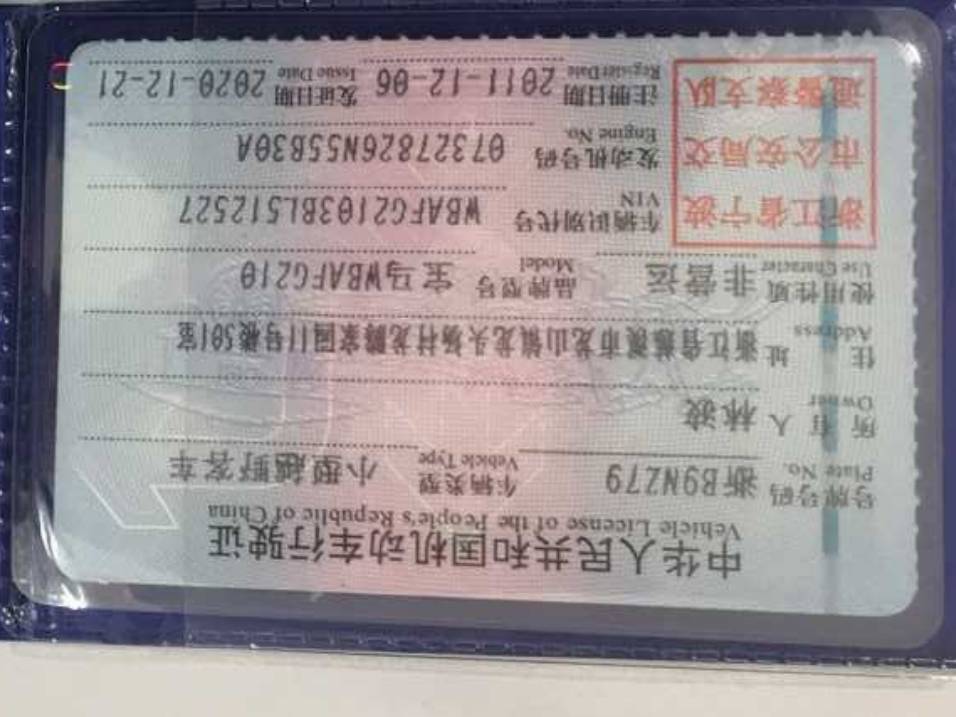 中华人民共和国机动车行驶证
Vehicle License of the People's Republic of China
号牌号码 Plate No. 浙B9NZ79 车辆类型 Vehicle Type 小型越野客车
所有人 Owner 林波
住址 Address 浙江省慈溪市龙山镇龙头场村龙腾家园11号楼501室
使用性质 Use Character 非营运 品牌型号 Model 宝马WBAFG210
浙江省宁波市公安局交通警察支队
车辆识别代号 VIN WBAFG2103BL512527
发动机号码 Engine No. 07327826N55B30A
注册日期 Register Date 2011-12-06 发证日期 Issue Date 2020-12-21